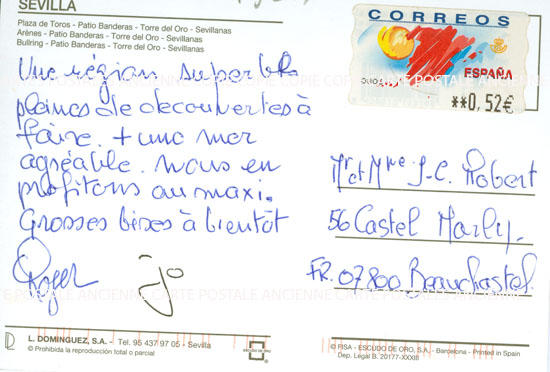 SEVILLA
Plaza de Toros - Patio Banderas - Torre del Oro - Sevillanas
Arènes - Patio Banderas - Torre del Oro - Sevillanas
Bullring - Patio Banderas - Torre del Oro - Sevillanas
CORREOS
ESPAÑA
**0,52€
Une région superbe
pleines de decouvertes à
faire. + une mer
agréable. nous en
profitons au maxi.
Grosses bises à bientôt
Roger Jo
Mr et Mme J-C. Robert
56 Castel Marly.
FR. 07800 Beauchastel.
CARTE POSTALE ANCIENNE
L. DOMINGUEZ, S.A. - Tel. 95 437 97 05 - Sevilla
© Prohibida la reproducción total o parcial
ESCUDO DE ORO
© FISA - ESCUDO DE ORO, S.A. - Barcelona - Printed in Spain
Dep. Legal B. 20177-XXXIII